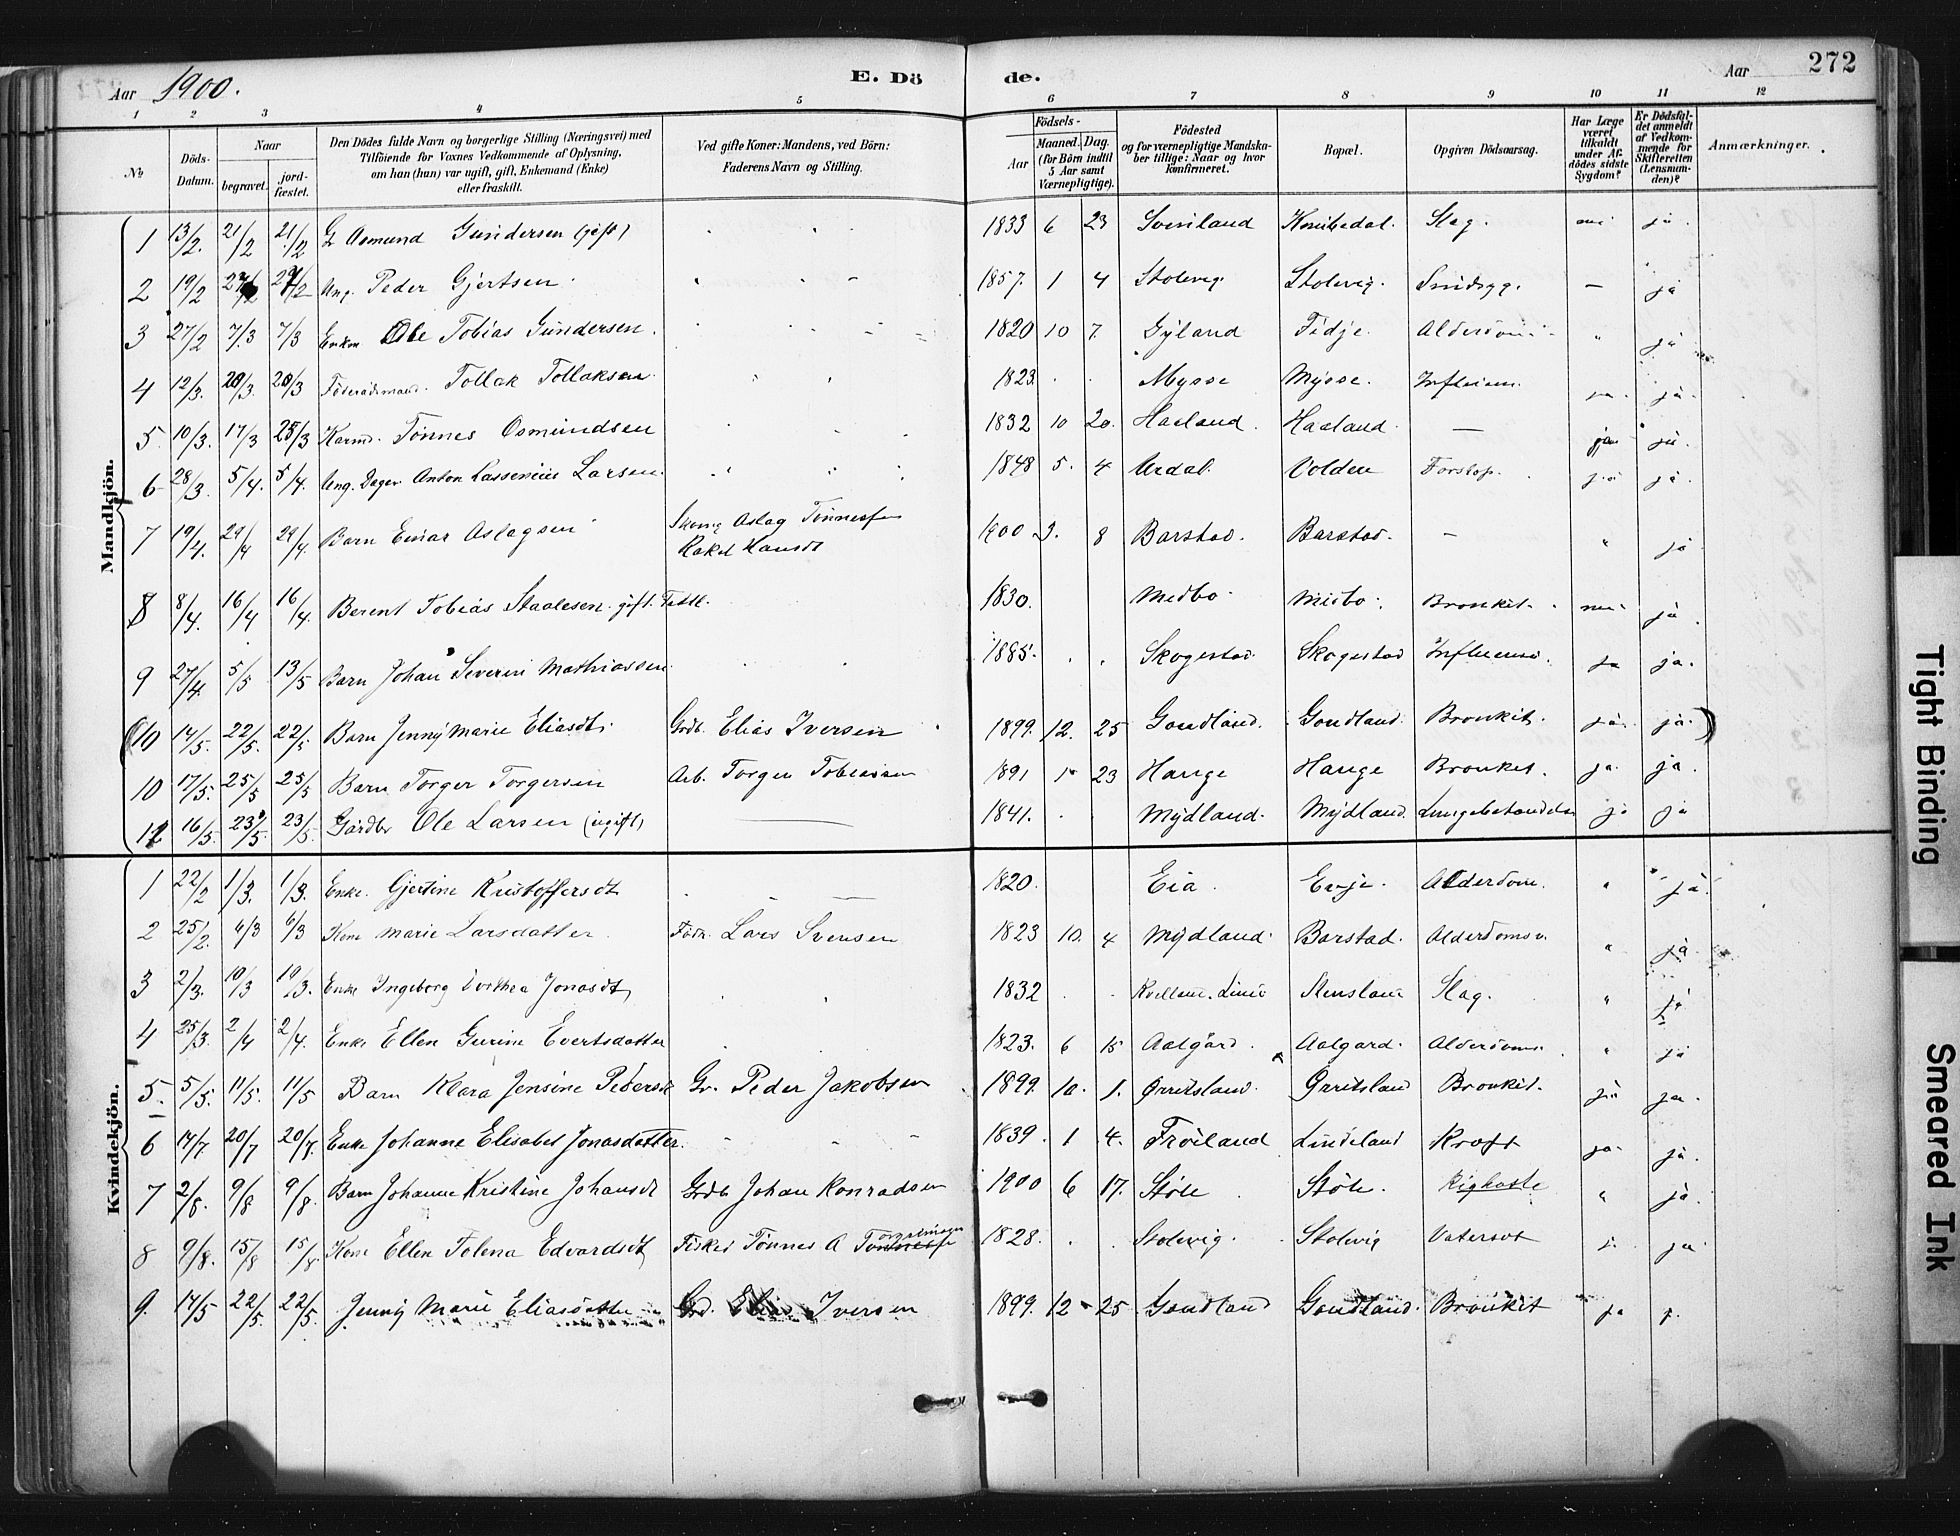 Aar 1900. E. Dö de. Aar 272
1 2 3 4 5 6 7 8 9 10 11 12
№ Döds-Datum. Naar begravet. jord-fæstet. Den Dödes fulde Navn og borgerlige Stilling (Næringsvei) med Tilföiende for Voxnes Vedkommende af Oplysning, om han (hun) var ugift, gift, Enkemand (Enke) eller fraskilt. Ved gifte Koner: Mandens, ved Börn: Faderens Navn og Stilling. Födsels- Aar Maaned. Dag. (for Börn indtil 5 Aar samt Værnepligtige). Födested og for værnepligtige Mandskaber tillige: Naar og hvor konfirmeret. Bopæl. Opgiven Dödsaarsag. Har Læge været tilkaldt under Afdödes sidste Sygdom? Er Dödsfaldet anmeldt af Vedkommende for Skifteretten (Lensmanden)? Anmærkninger.
Mandkjön.
1 13/2. 21/2 21/2 G Asmund Gundersen (gift) 1833 6 23 Slag. nei ja.
2 19/2 27/2 Ung. Peder Gjertsen 1857. 1 4 Stolevig. Stolevig. — ja
3 27/2 7/3 7/3 Enkm Ole Tobias Gundersen. 1820 10 7. Gyland Fidje. " ja
4 12/3. 20/3. 20/3 Föderaadsmand. Tollak Tollaksen. 1823. Mysse Mysse. ja. ja.
5 10/3. 17/3 25/3 Tönnes Osmundsen 1832 10 20. Haaland. Haaland. — ja ja.
6 28/3. 5/4. 5/4. Ung. Larsen. 1848 5. 4 Urdal. Volden ja ja.
7 19/4. 29/4 29/4. Barn Einar Aslagsen Aslag Tönnesen Rakel Hansdt 1900 3. 8 Barstad. Barstad. — " ja
8 8/4. 16/4 16/4. Berent Tobias Staalesen. gift. 1830. Medbo. Midbo. Bronkit. nei ja.
9 27/4. 5/5 13/5 Barn Johan Severin Mathiassen. 1885. Skogestad Skogestad ja ja.
(10 14/5. 22/5. 22/5 Barn Jenny Marie Eliasdt. Grdb. Elias Iversen 1899. 12. 25 Goudland. Goudland. Bronkit. ja. ja.)
10 17/5. 25/5 25/5 Barn Torger Torgersen Arb. Torger Tobiassen 1891 1 23 Hauge Hauge Bronkit. ja. ja.
12 16/5. 23/5 23/5. Gårdbr Ole Larsen (ugift) — 1841. Mydland. Mydland. Lungebetændelse ja ja
Kvindekjön.
1 22/2 1/3. 1/3. Enke. Gjertine Kristoffersdt 1820. Eia. Alderdom. " ja.
2 25/2. 6/3 6/3 Kone Marie Larsdatter Lars Svensen 1823 10. 4 Mydland. Barstad. " ja
3 2/3. 10/3 10/3. Enke Ingeborg Dorthea Jonasdt 1832 Slag. " ja
4 25/3. 2/4 2/4. Enke Ellen Gurine Evertsdatter 1823. 6 15 Aalgård. Aalgard. " ja
5. 5/5. 11/5. 11/5 Barn Klara Jensine Pedersdt Gr. Peder Jakobsen 1899. 10. 1. Ørritsland. Ørritsland Bronkit. ja ja.
6 14/7. 20/7 20/7. Enke Johanne Elisabet Jonasdatter. 1839. 1 4. Fröiland Lindeland Kræft ja. ja.
7 2/8. 9/8 9/8. Barn Johanne Kristine Johansdt Grdb Johan Konradsen 1900 6 17. Støle Støle. " ja.
8 9/8. 15/8 15/8. Kone Ellen Tolena Edvardsdt Fisker Tønnes A 1828. Stolevig. Stolevig Vatersot ja.
9. 14/5 22/5. 22/5. Jenny Marie Eliasdatter Grd. Elias Iversen 1899. 12 25 Goudland Goudland. Bronkit ja j.
Tight Binding
Smeared Ink